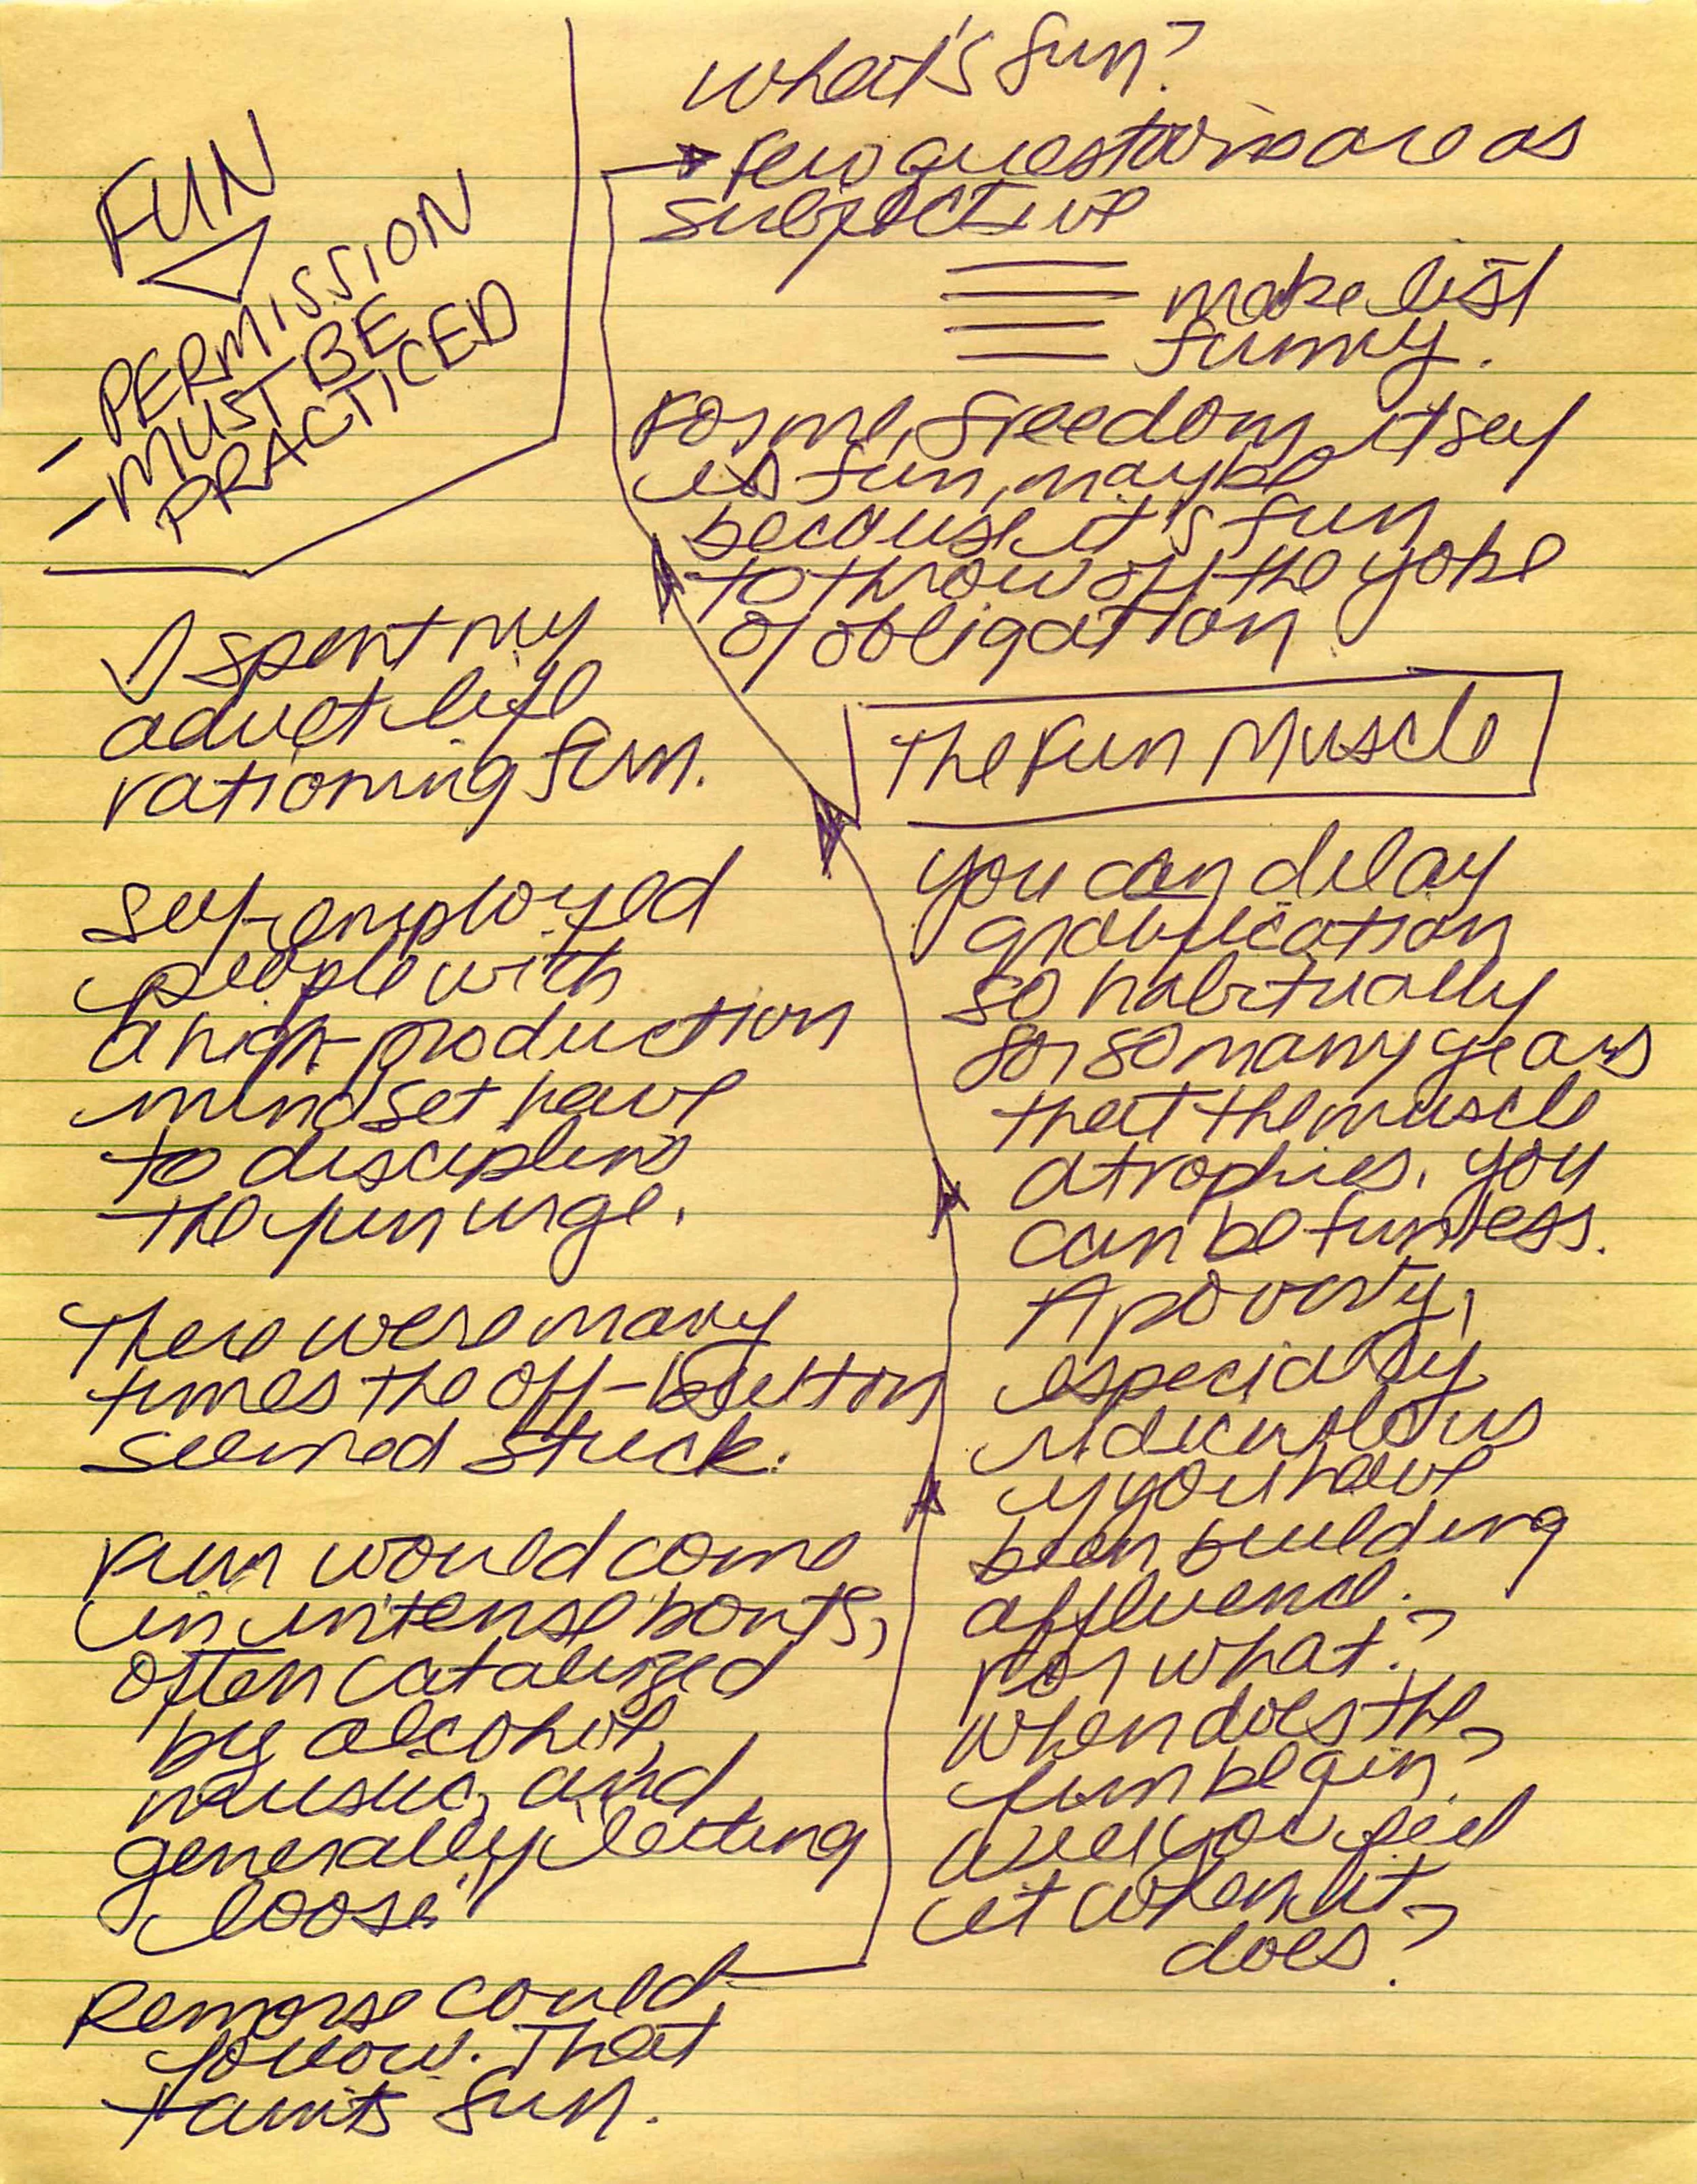 FUN
- PERMISSION
- MUST BE
PRACTICED
I spent my
adult life
rationing fun.
Self-employed
people with
a high-production
mindset have
to discipline
the fun urge.
There were many
times the off-button
seemed stuck.
Fun would come
in intense bouts,
often catalyzed
by alcohol,
music, and
generally letting
loose.
Remorse could
follow. That
taints fun.
What's fun?
Few questions are as
subjective
make list
funny.
For me, freedom itself
is fun, maybe
because it's fun
to throw off the yoke
of obligation
The Fun Muscle
You can delay
gratification
so habitually
for so many years
that the muscle
atrophies. You
can be funless.
A poverty,
especially
ridiculous
if you have
been building
affluence.
For what?
When does the
fun begin?
Will you feel
it when it
does?